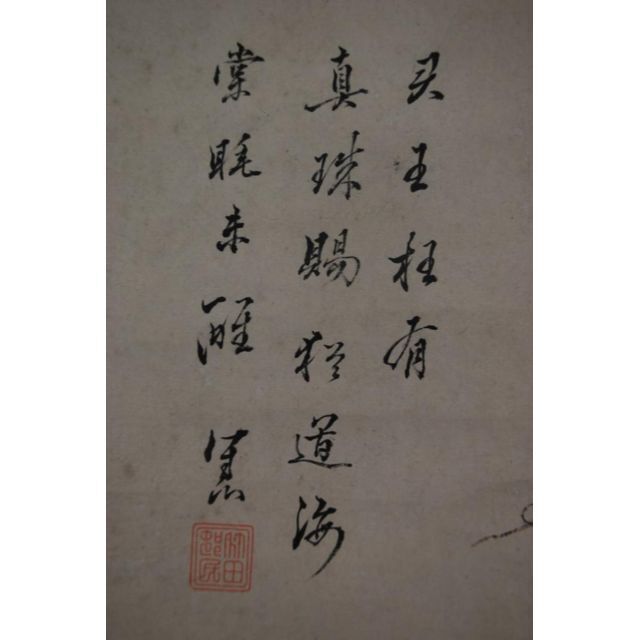 君王枉有
真珠賜猶道海
棠眠未醒 憲
竹田